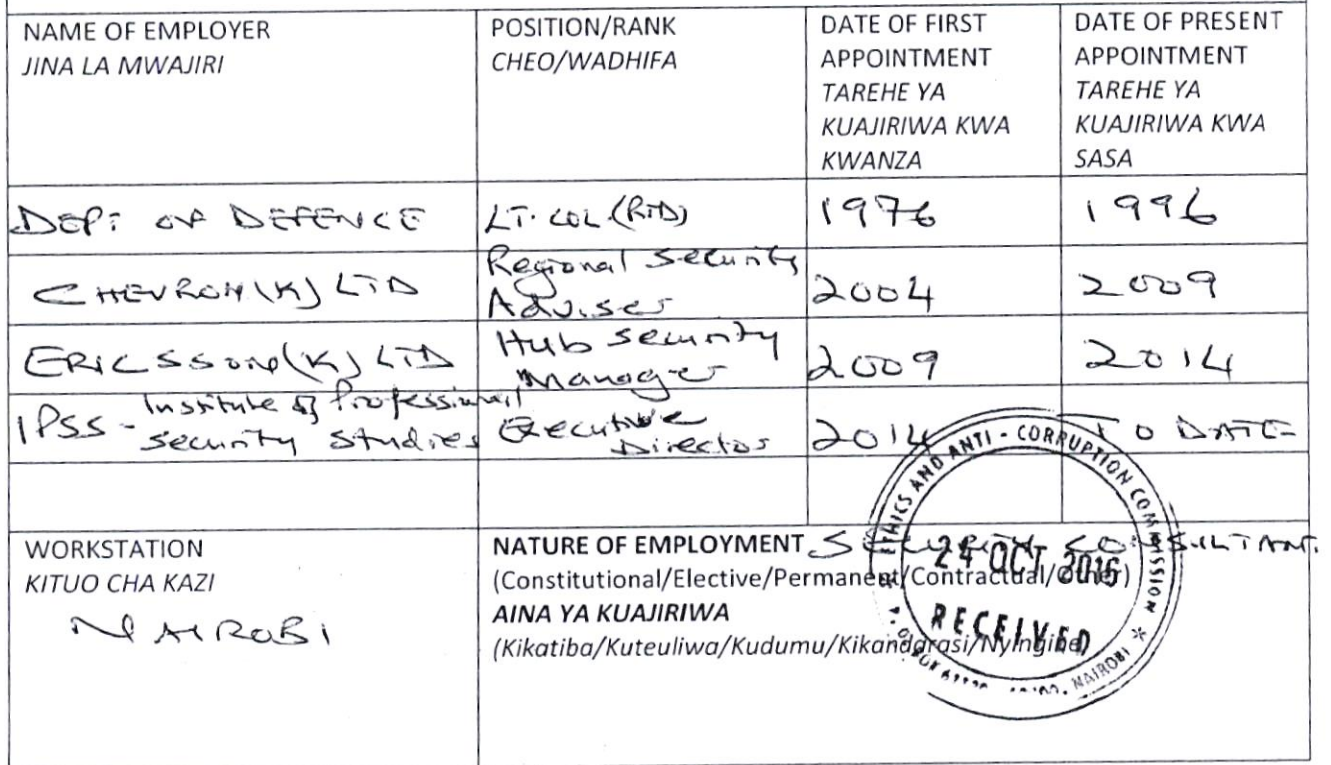 NAME OF EMPLOYER
JINA LA MWAJIRI
POSITION/RANK
CHEO/WADHIFA
DATE OF FIRST
APPOINTMENT
TAREHE YA
KUAJIRIWA KWA
KWANZA
DATE OF PRESENT
APPOINTMENT
TAREHE YA
KUAJIRIWA KWA
SASA
DEPT OF DEFENCE
LT. COL (RTD)
1976
1996
CHEVRON (K) LTD
Regional Security
Adviser
2004
2009
ERICSSON (K) LTD
Hub Security
Manager
2009
2014
IPSS - Institute of Professional
Security Studies
Executive
Director
2014
TO DATE
WORKSTATION
KITUO CHA KAZI
NAIROBI
NATURE OF EMPLOYMENT SECURITY CONSULTANT.
(Constitutional/Elective/Permanent/Contractual/Other)
AINA YA KUAJIRIWA
(Kikatiba/Kuteuliwa/Kudumu/Kikandarasi/Nyingine)
ETHICS AND ANTI - CORRUPTION COMMISSION
24 OCT 2016
RECEIVED
NAIROBI